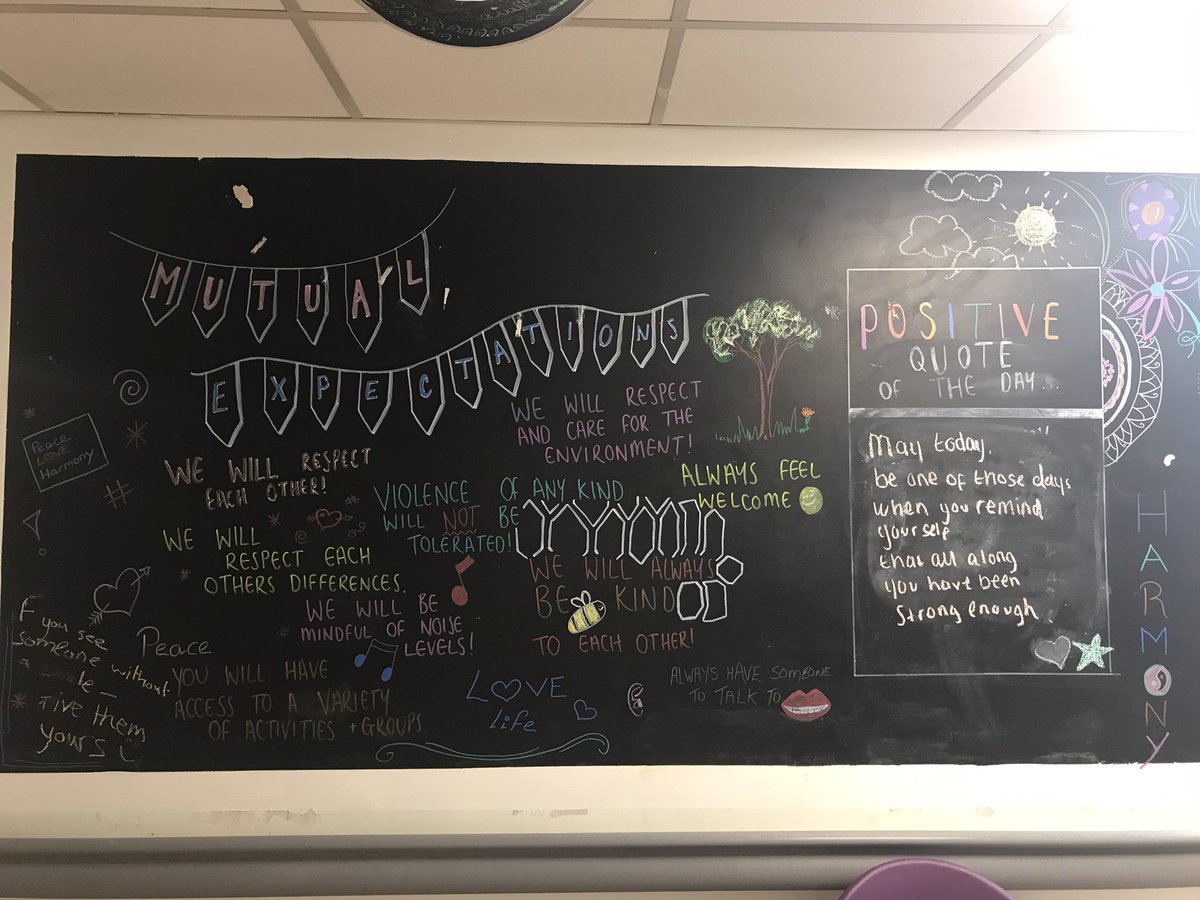 MUTUAL
EXPECTATIONS
WE WILL RESPECT
AND CARE FOR THE
ENVIRONMENT!
Peace
LOVE
Harmony
WE WILL RESPECT
EACH OTHER!
VIOLENCE OF ANY KIND
WILL NOT BE
TOLERATED!
ALWAYS FEEL
WELCOME
WE WILL
RESPECT EACH
OTHERS DIFFERENCES.
WE WILL ALWAYS
BE KIND
TO EACH OTHER!
WE WILL BE
MINDFUL OF NOISE
LEVELS!
If you see
someone without
a
them
yours
Peace
YOU WILL HAVE
ACCESS TO A VARIETY
OF ACTIVITIES + GROUPS
LOVE
life
ALWAYS HAVE SOMEONE
TO TALK TO
POSITIVE
QUOTE
OF THE DAY...
May today,
be one of those days
when you remind
yourself
that all along
you have been
strong enough.
HARMONY